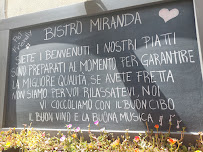 BISTRO MIRANDA
SIETE I BENVENUTI. I NOSTRI PIATTI
SONO PREPARATI AL MOMENTO PER GARANTIRE
LA MIGLIORE QUALITÀ SE AVETE FRETTA
NON SIAMO PER VOI RILASSATEVI, NOI
VI COCCOLIAMO CON IL BUON CIBO
IL BUON VINO E LA BUONA MUSICA